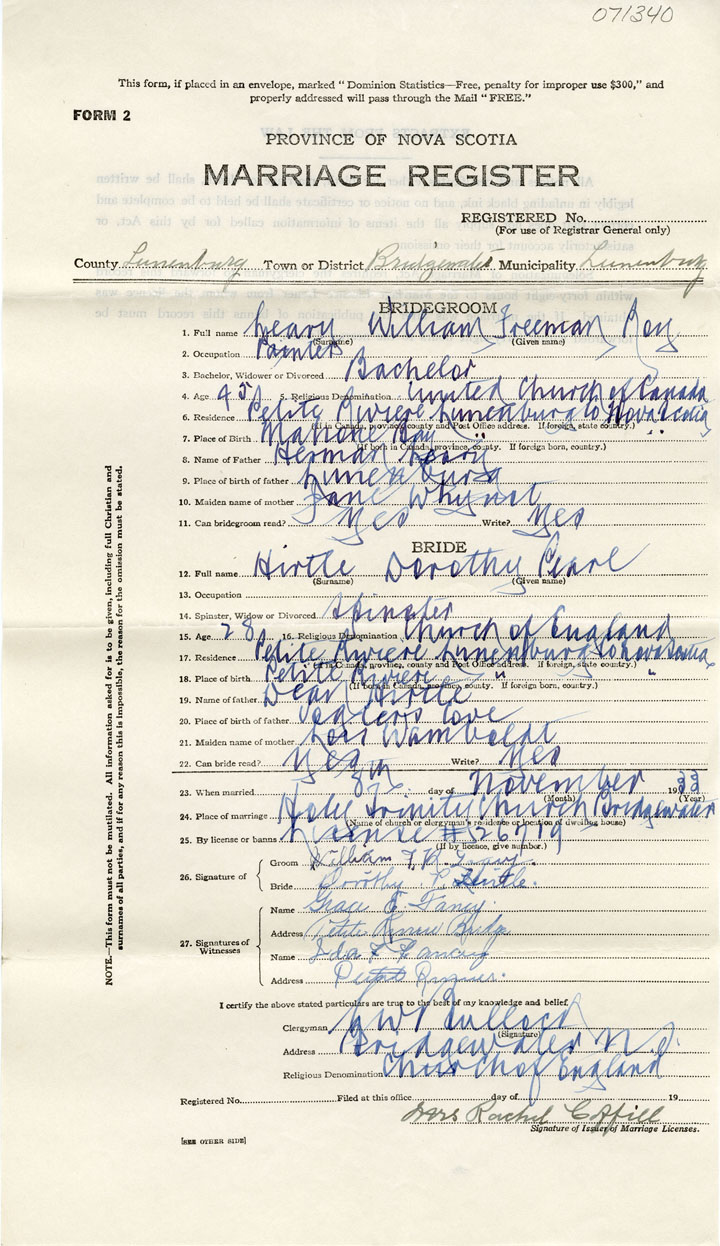 071340
This form, if placed in an envelope, marked "Dominion Statistics—Free, penalty for improper use $300," and
properly addressed will pass through the Mail "FREE."
FORM 2
PROVINCE OF NOVA SCOTIA
MARRIAGE REGISTER
REGISTERED No.
(For use of Registrar General only)
County Lunenburg Town or District Bridgewater Municipality Lunenburg
BRIDEGROOM
1. Full name Leary William Freeman Roy
(Surname) (Given name)
2. Occupation Painter
3. Bachelor, Widower or Divorced Bachelor
4. Age 45 5. Religious Denomination United Church of Canada
6. Residence Petite Riviere Lunenburg Co Nova Scotia
(If in Canada, province, county and Post Office address. If foreign, state country.)
7. Place of Birth Mahone Bay " "
(If born in Canada, province, county. If foreign born, country.)
8. Name of Father Herman Leary
9. Place of birth of father Lunenburg
10. Maiden name of mother Jane Whynot
11. Can bridegroom read? Yes Write? Yes
BRIDE
12. Full name Hirtle Dorothy Pearl
(Surname) (Given name)
13. Occupation
14. Spinster, Widow or Divorced Spinster
15. Age 28 16. Religious Denomination Church of England
17. Residence Petite Riviere Lunenburg Co Nova Scotia
(If in Canada, province, county and Post Office address. If foreign, state country.)
18. Place of birth Petite Riviere " "
(If born in Canada, province, county. If foreign born, country.)
19. Name of father Dean Hirtle
20. Place of birth of father Voglers Cove
21. Maiden name of mother Lois Wamboldt
22. Can bride read? Yes Write? Yes
23. When married 8th day of November 1933
(Month) (Year)
24. Place of marriage Holy Trinity Church Bridgewater
(Name of church or clergyman's residence or location of dwelling house)
25. By license or banns License # 26719
(If by licence, give number.)
26. Signature of
Groom William F. R. Leary.
Bride Dorothy P. Hirtle.
27. Signatures of
Witnesses
Name Grace Fancy.
Address Petite Riviere Bridge
Name Ida Fancy
Address Petite Riviere.
I certify the above stated particulars are true to the best of my knowledge and belief.
Clergyman Bullock
(Signature)
Address Bridgewater N.S.
Religious Denomination Church of England
Registered No. Filed at this office day of 19
Mrs Rachel
Signature of Issuer of Marriage Licenses.
[SEE OTHER SIDE]
NOTE.—This form must not be mutilated. All information asked for is to be given, including full Christian and
surnames of all parties, and if for any reason this is impossible, the reason for the omission must be stated.